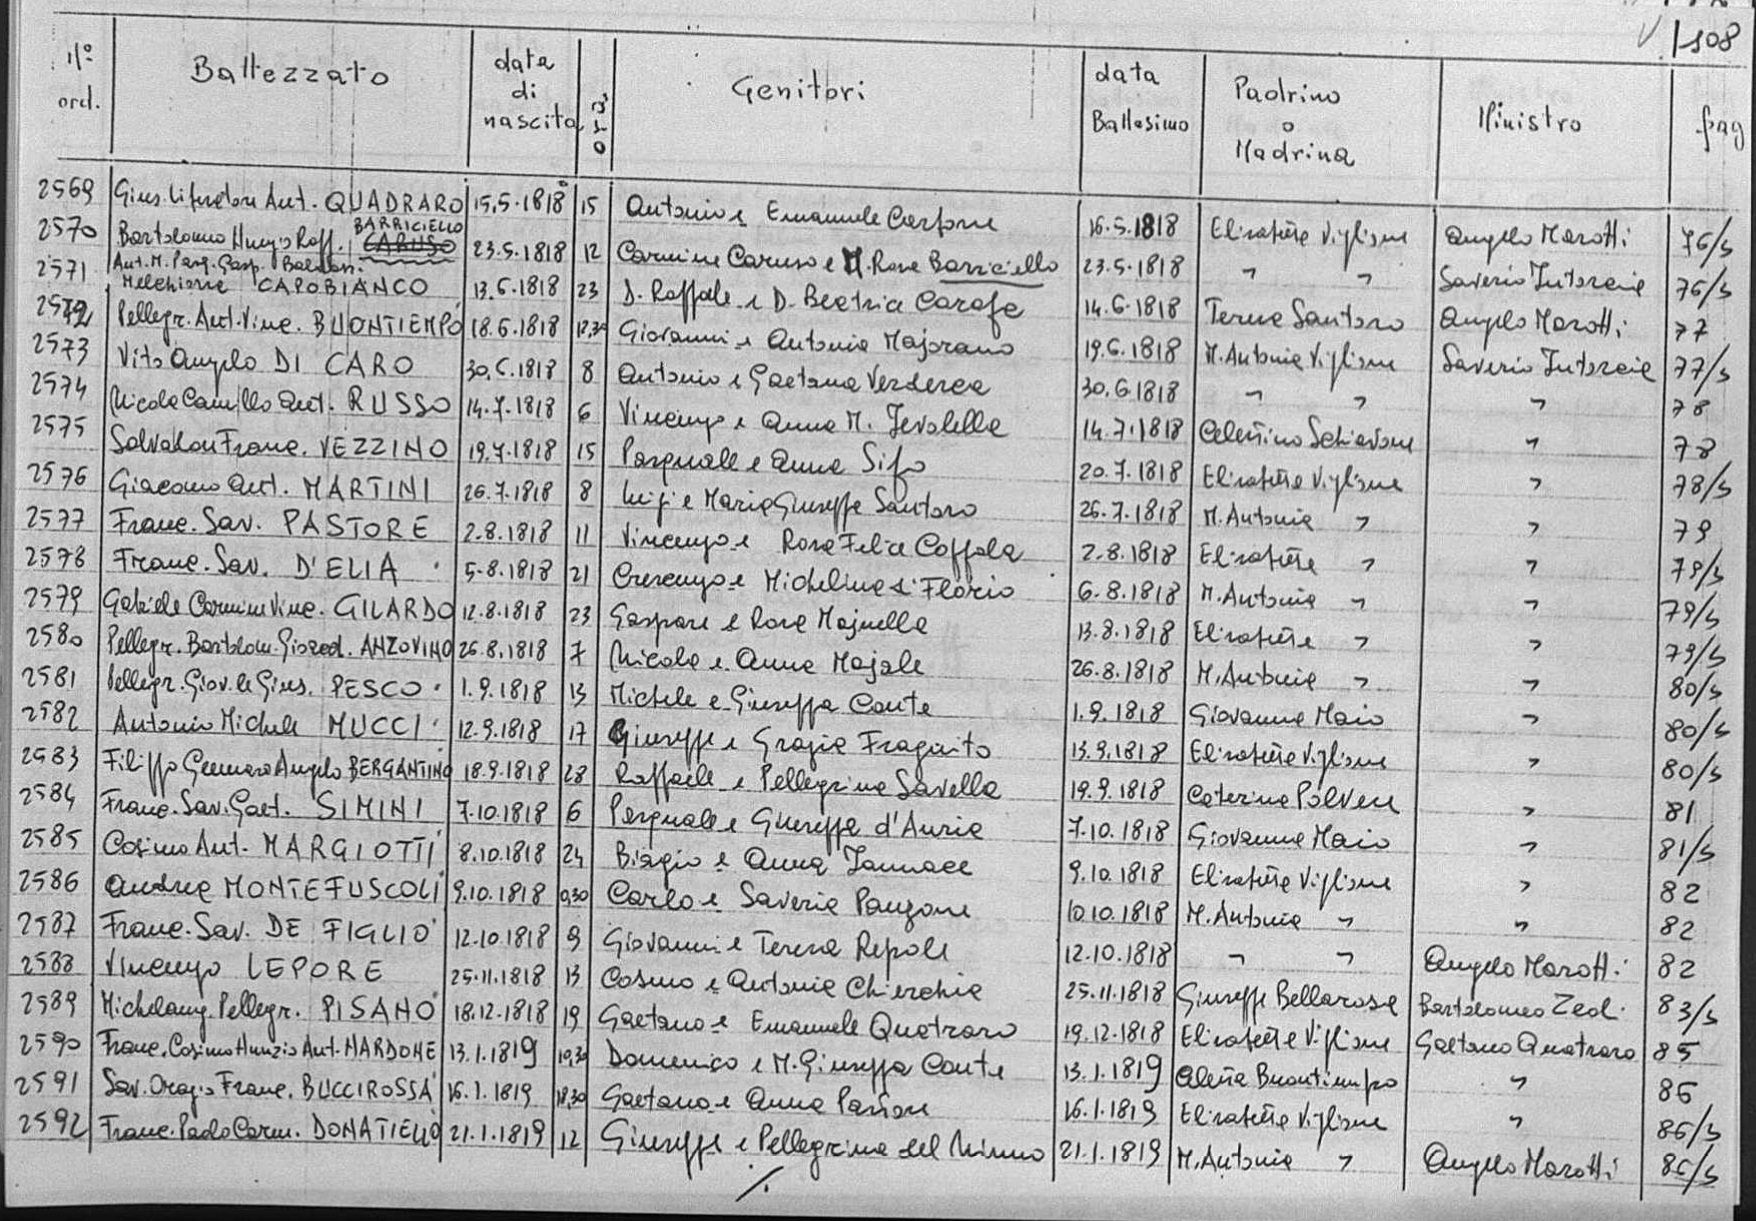 V/108
N° ord. Battezzato data di nascita Genitori data Battesimo Padrino o Madrina Ministro pag
2569 Gius. Liberatore Ant. QUADRARO 15.5.1818 15 Antonio e Emanuele Carfone 16.5.1818 Elisabetta Viglione Angelo Marotti 76/s
2570 Bartolomeo Nunzio Raff. CARUSO BARRICIELLO 23.5.1818 12 Carmine Caruso e M. Rosa Barriciello 23.5.1818 " " Saverio Intorcia 76/s
2571 Ant. M. Pasq. Gasp. Baldass. Melchiorre CAPOBIANCO 13.6.1818 23 D. Raffaele e D. Beatrice Carafa 14.6.1818 Teresa Santoro Angelo Marotti 77
2572 Pellegr. Ant. Vinc. BUONTIEMPO 18.6.1818 12,30 Giovanni e Antonia Majorano 19.6.1818 M. Antonia Viglione Saverio Intorcia 77/s
2573 Vito Angelo DI CARO 30.6.1818 8 Antonio e Gaetana Verderea 30.6.1818 " " " 78
2574 Nicola Camillo Ant. RUSSO 14.7.1818 6 Vincenzo e Anna M. Jevolella 14.7.1818 Celestino Schiavone " 78
2575 Salvatore Franc. VEZZINO 19.7.1818 15 Pasquale e Anna Sifo 20.7.1818 Elisabetta Viglione " 78/s
2576 Giacomo Ant. MARTINI 26.7.1818 8 Luigi e Maria Giuseppe Santoro 26.7.1818 M. Antonia " " 79
2577 Franc. Sav. PASTORE 2.8.1818 11 Vincenzo e Rosa Felice Coffola 2.8.1818 Elisabetta " " 79/s
2578 Franc. Sav. D'ELIA 5.8.1818 21 Crescenzo e Michelina d'Florio 6.8.1818 M. Antonia " " 79/s
2579 Gabriele Carmine Vinc. GILARDO 12.8.1818 23 Gaspare e Rosa Majuella 13.8.1818 Elisabetta " " 79/s
2580 Pellegr. Bartolom. Giosod. ANZOVINO 26.8.1818 7 Nicola e Anna Majale 26.8.1818 M. Antonia " " 80/s
2581 Pellegr. Giov. le Gius. PESCO 1.9.1818 13 Michele e Giuseppa Conte 1.9.1818 Giovanna Maio " 80/s
2582 Antonio Michele MUCCI 12.9.1818 17 Giuseppe e Grazia Fragnito 13.9.1818 Elisabetta Viglione " 80/s
2583 Filippo Gennaro Angelo BERGANTINO 18.9.1818 28 Raffaele e Pellegrina Savella 19.9.1818 Caterina Polvere " 81
2584 Franc. Sav. Gaet. SIMINI 7.10.1818 6 Pasquale e Giuseppa d'Auria 7.10.1818 Giovanna Maio " 81/s
2585 Cosimo Ant. MARGIOTTI 8.10.1818 24 Biagio e Anna Iannace 9.10.1818 Elisabetta Viglione " 82
2586 Andrea MONTEFUSCOLI 9.10.1818 0,30 Carlo e Saveria Panzone 10.10.1818 M. Antonia " " 82
2587 Franc. Sav. DE FIGLIO 12.10.1818 9 Giovanni e Teresa Repole 12.10.1818 " " Angelo Marotti 82
2588 Vincenzo LEPORE 25.11.1818 13 Cosimo e Antonia Chierchia 25.11.1818 Giuseppe Bellarosa Bartolomeo Zeol. 83/s
2589 Michelang. Pellegr. PISANO 18.12.1818 19 Gaetano e Emanuele Quatraro 19.12.1818 Elisabetta Viglione Gaetano Quatraro 85
2590 Franc. Cosimo Nunzio Ant. NARDONE 13.1.1819 10,30 Domenico e M. Giuseppa Conte 13.1.1819 Elena Buontiempo " 86
2591 Sav. Orazio Franc. BUCCIROSSA 16.1.1819 18,30 Gaetano e Anna Parrone 16.1.1819 Elisabetta Viglione " 86/s
2592 Franc. Paolo Carm. DONATIELLO 21.1.1819 12 Giuseppe e Pellegrina del Ninno 21.1.1819 M. Antonia " Angelo Marotti 86/s
./.